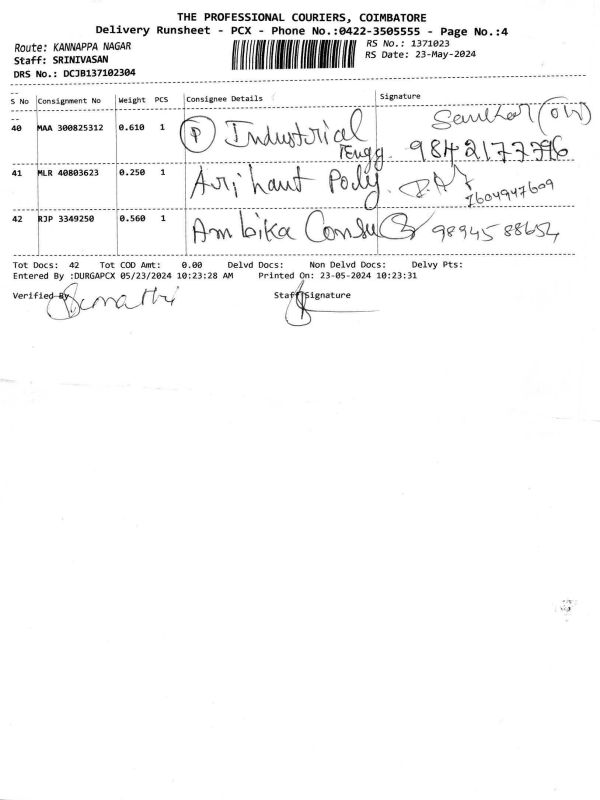 THE PROFESSIONAL COURIERS, COIMBATORE
Delivery Runsheet - PCX - Phone No.:0422-3505555 - Page No.:4
Route: KANNAPPA NAGAR RS No.: 1371023
Staff: SRINIVASAN RS Date: 23-May-2024
DRS No.: DCJB137102304
S No Consignment No Weight PCS Consignee Details Signature
40 MAA 300825312 0.610 1 (P) Industrial Engg. (OW) 9842177796
41 MLR 40803623 0.250 1 Arihant Poly. 7604947609
42 RJP 3349250 0.560 1 Ambika Consu 9894588654
Tot Docs: 42 Tot COD Amt: 0.00 Delvd Docs: Non Delvd Docs: Delvy Pts:
Entered By :DURGAPCX 05/23/2024 10:23:28 AM Printed On: 23-05-2024 10:23:31
Verified By Staff Signature